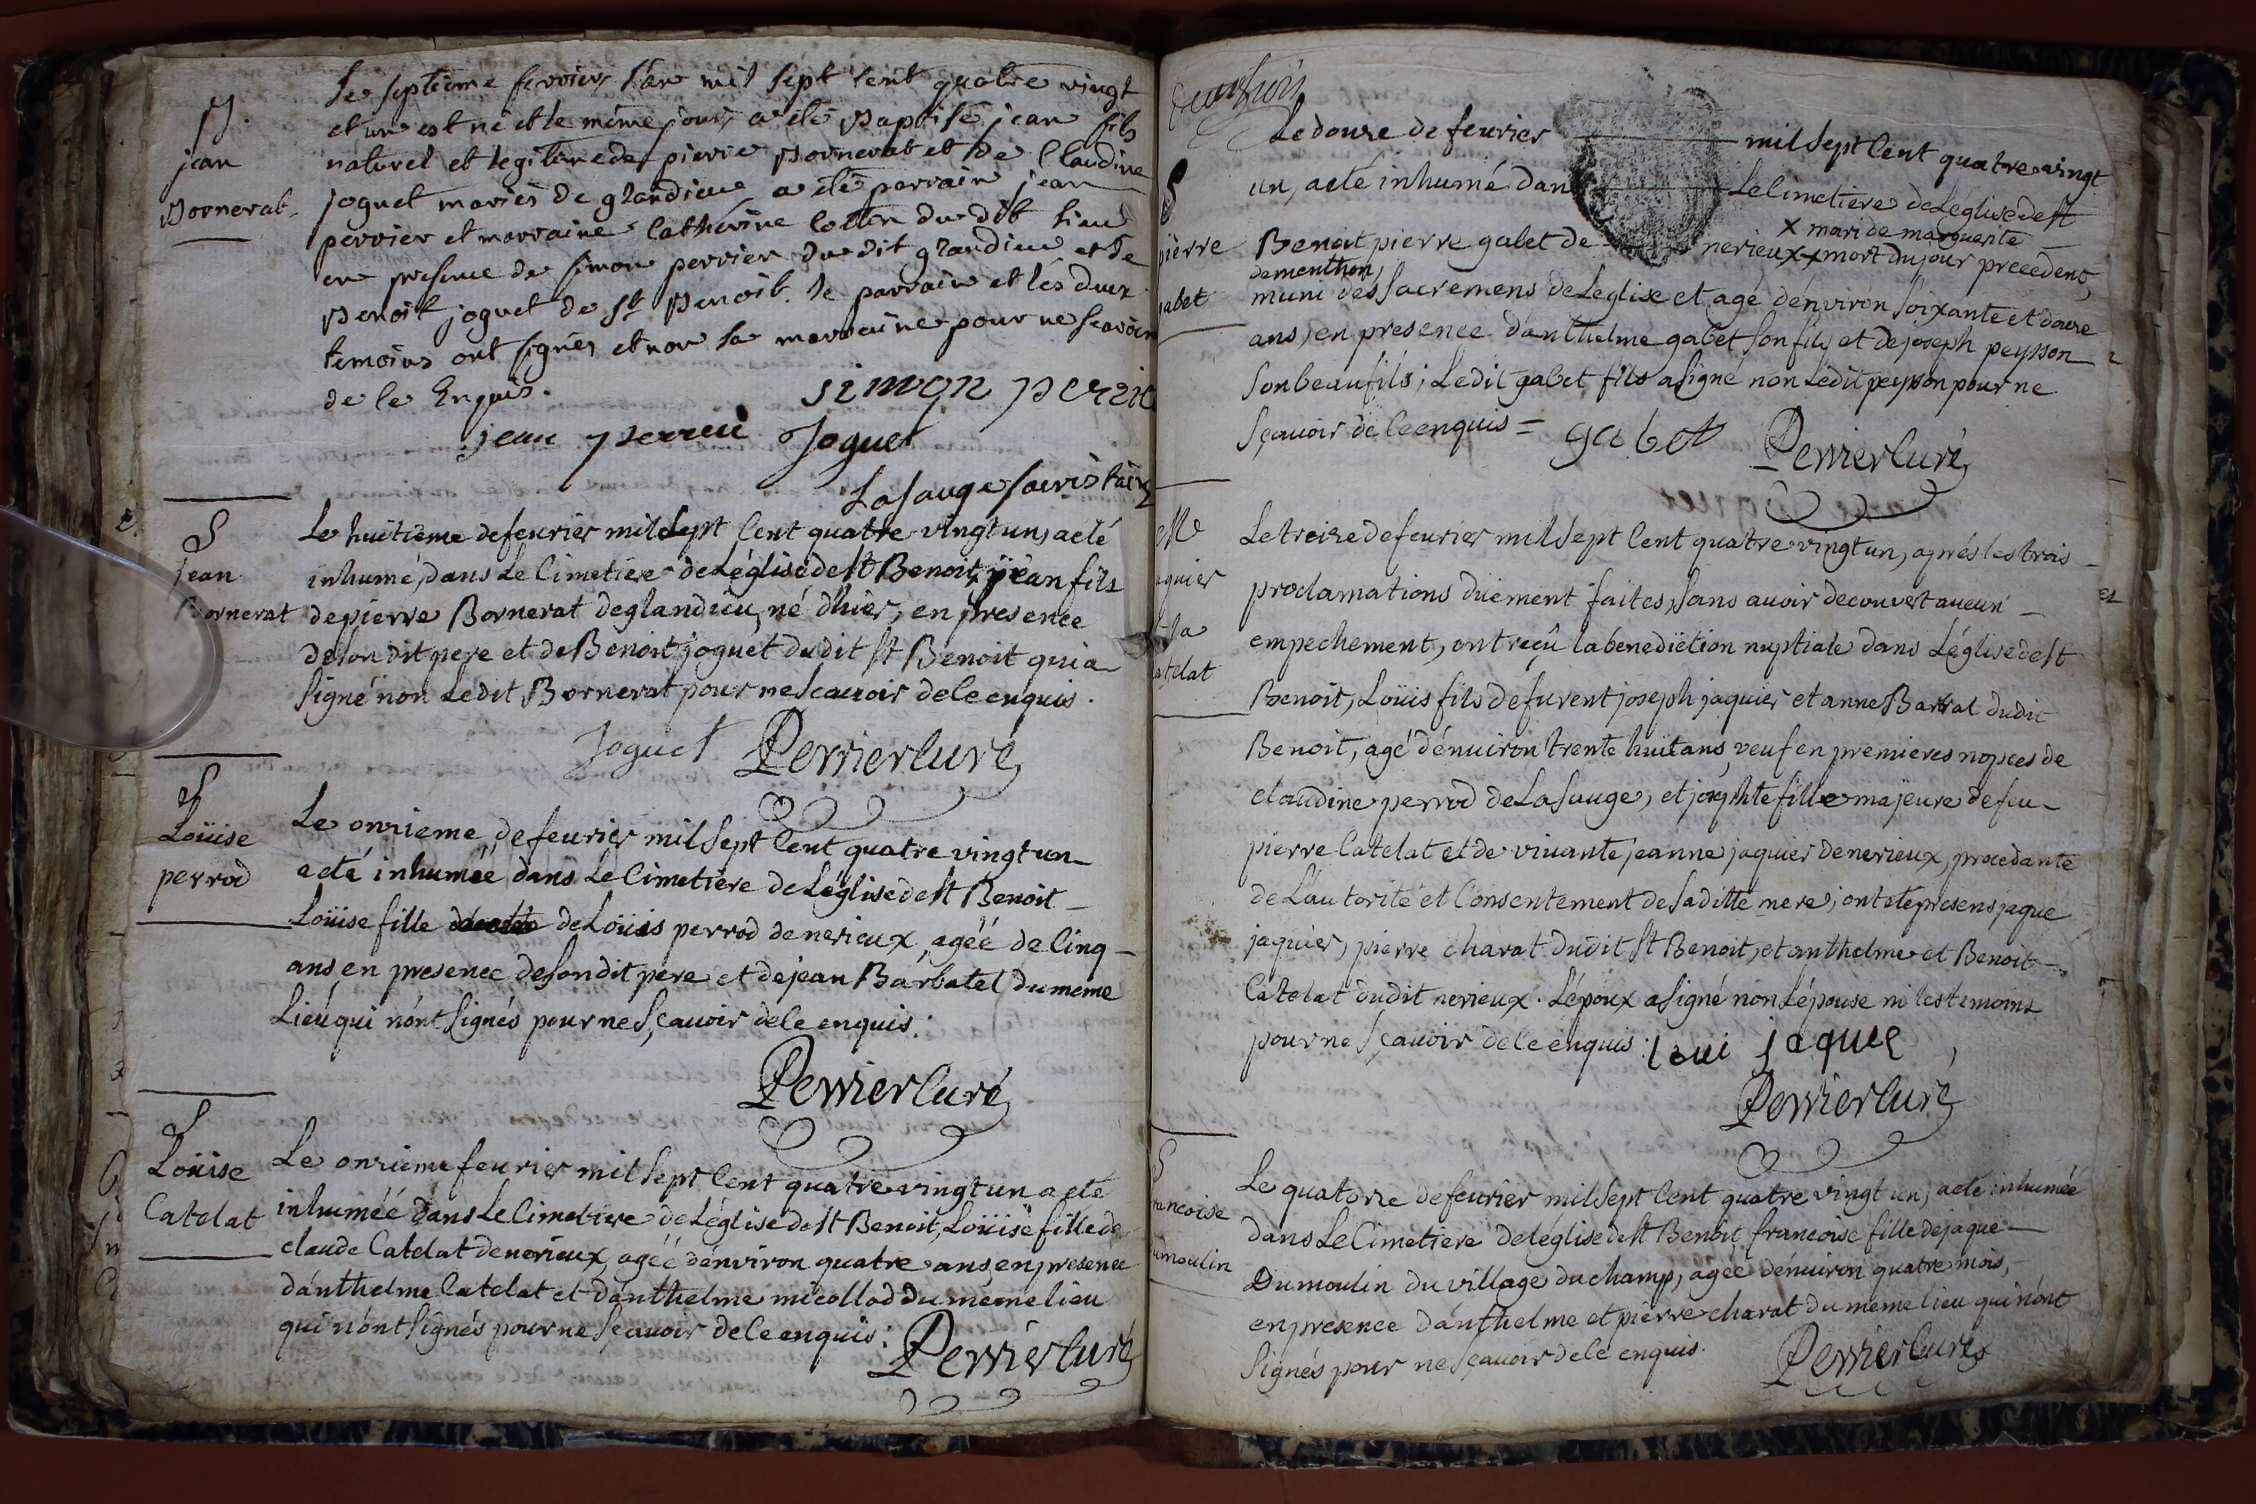 B.
jean
Bornerat.
Le septieme fevrier l'an mil sept cent quatre vingt
et un est né et le même jour a été Baptisé jean fils
naturel et legitime de pierre Bornerat et de Claudine
joguet mariés de glandieu a été parrain jean
perrier et marraine Catherine Cotton du dit lieu
en presence de simon perrier du dit glandieu et de
Benoit joguet de St Benoit. le parrain et les deux
temoins ont signés et non la marraine pour ne scavoir
de le Enquis.
simon perrie
jean perrie Joguet
Lasauge sacristain
S
jean
Bornerat
Le huitieme de feurier mil sept Cent quatre vingt un, a eté
inhumé, dans Le Cimetiere de Léglise de St Benoit, jean fils
de pierre Bornerat de glandieu, né d'hier, en presence
de son dit pere et de Benoit joguet du dit St Benoit qui a
signé non Ledit Bornerat pour ne Scauoir de le enquis.
Joguet Perrier Curé
S
Loüise
perrod
Le onzieme, de feurier mil Sept Cent quatre vingt un
a eté inhumée dans Le Cimetiere de Léglise de St Benoit
Loüise fille de Loüis perrod de nerieux, agéé de Cinq
ans, en presence de son dit pere et de jean Barbatel du meme
Lieu qui n'ont Signés pour ne Sçauoir de le enquis.
Perrier Curé
S
Loüise
Catelat
Le onzieme feurier mil Sept Cent quatre vingt un a eté
inhuméé dans Le Cimetiere de Léglise de St Benoit, Loüise fille de
claude Catelat de nerieux, agéé d'énviron quatre ans, en presence
d'anthelme Catelat et d'anthelme micollod du meme lieu
qui n'ont Signés pour ne Sçauoir de le enquis.
Perrier Curé
S
pierre
gabet
Le douze de feurier mil Sept Cent quatre vingt
un, a eté inhumé dans Le Cimetiere de Léglise de St
x mari de marguerite
Benoit pierre gabet de nerieux x mort du jour precedent,
dementhon,
muni des Sacremens de Leglise et agé d'énviron Soixante et douze
ans, en presence d'anthelme gabet Son fils et de joseph peysson
Son beaufils; Ledit gabet fils a signé non Ledit peysson pour ne
Sçauoir de le enquis =
gabet Perrier Curé
M
aquier
La
atelat
Le treize de feurier mil Sept Cent quatre vingt un, aprés les trois
proclamations düement faites, Sans auoir decouvert aucun
empechement, ont reçû la benediction nuptiale dans Léglise de St
Benoit, Loüis fils de furent joseph jaquier et anne Barral du dit
Benoit, agé d'énuiron trente huit ans, veuf en premieres nopces de
claudine perrod de La Sauge, et josephte fille majeure de feu
pierre Catelat et de viuante jeanne jaquier de nerieux, procedante
de L'autorité et Consentement de Sa ditte mere; ont eté presens jaque
jaquier, pierre charat du dit St Benoit, et anthelme et Benoit
Catelat du dit nerieux. L'époux a signé non Lépouse ni les temoins
pour ne Sçauoir de le enquis. loui jaquie
Perrier Curé
S
rancoise
umoulin
Le quatorze de feurier mil Sept Cent quatre vingt un, a eté inhuméé
dans Le Cimetiere de léglise de St Benoit francoise fille de jaque
Dumoulin du village du champ, agéé d'énuiron quatre mois,
en presence d'anthelme et pierre charat du meme lieu qui n'ont
Signés pour ne Sçauoir de le enquis.
Perrier Curé